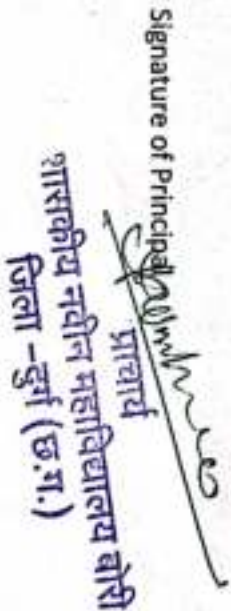 Signature of Principal
प्राचार्य
शासकीय नवीन महाविद्यालय बोरी
जिला -दुर्ग (छ.ग.)